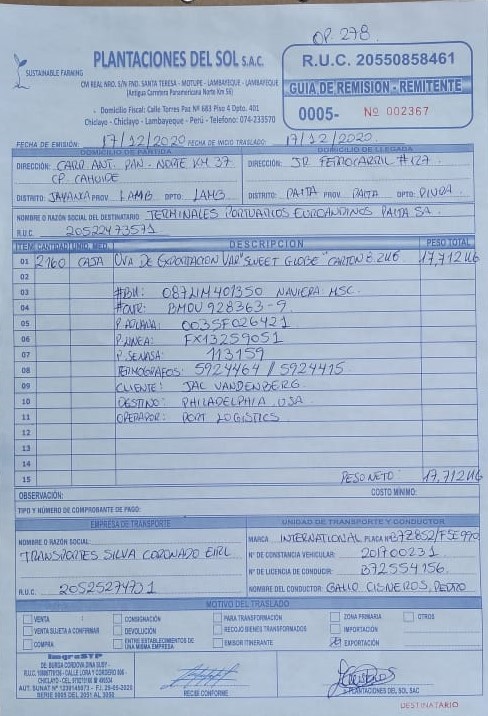 OP. 278
SUSTAINABLE FARMING
PLANTACIONES DEL SOL S.A.C.
CM REAL NRO. S/N FND. SANTA TERESA - MOTUPE - LAMBAYEQUE - LAMBAYEQUE
(Antigua Carretera Panamericana Norte Km 56)
- Domicilio Fiscal: Calle Torres Paz N° 663 Piso 4 Dpto. 401
Chiclayo - Chiclayo - Lambayeque - Perú - Telefono: 074-233570
R.U.C. 20550858461
GUIA DE REMISION - REMITENTE
0005- Nº 002367
FECHA DE EMISIÓN: 17/12/2020 FECHA DE INICIO TRASLADO: 17/12/2020
DOMICILIO DE PARTIDA DOMICILIO DE LLEGADA
DIRECCIÓN: CARR. ANT. PAN. NORTE KM 37 DIRECCIÓN: JR FERROCARRIL #127
CP. CAHUIDE
DISTRITO: JAYANCA PROV. LAMB DPTO: LAMB DISTRITO: PAITA PROV. PAITA DPTO: PIURA
NOMBRE O RAZON SOCIAL DEL DESTINATARIO TERMINALES PORTUARIOS EUROANDINOS PAITA SA.
R.U.C. 20522473571
ITEM CANTIDAD UNID. MED. DESCRIPCION PESO TOTAL
01 2160 CAJA UVA DE EXPORTACION VAR "SWEET GLOBE" CARTON 8.2KG 17,712KG
02
03 #BK: 087LIM401350 NAVIERA: MSC.
04 #CNTR: BMOU 928363-9
05 P. ADUANA: 0035F026421
06 P. LINEA: FX13259051
07 P. SENASA: 113159
08 TERMOGRAFOS: 5924464 // 5924415
09 CLIENTE: JAC VANDENBERG
10 DESTINO: PHILADELPHIA, USA
11 OPERADOR: PORT LOGISTICS
12
13
14
15 PESO NETO: 17,712KG
OBSERVACIÓN: COSTO MÍNIMO:
TIPO Y NÚMERO DE COMPROBANTE DE PAGO:
EMPRESA DE TRANSPORTE UNIDAD DE TRANSPORTE Y CONDUCTOR
NOMBRE O RAZÓN SOCIAL: MARCA INTERNATIONAL PLACA Nº B7Z852/F5E990
TRANSPORTES SILVA CORONADO EIRL Nº DE CONSTANCIA VEHICULAR: 201700231
Nº DE LICENCIA DE CONDUCIR: B72554156
R.U.C. 20525274701 NOMBRE DEL CONDUCTOR: GALLO CISNEROS, PEDRO
MOTIVO DEL TRASLADO
VENTA CONSIGNACIÓN PARA TRANSFORMACIÓN ZONA PRIMARIA OTROS
VENTA SUJETA A CONFIRMAR DEVOLUCIÓN RECOJO BIENES TRANSFORMADOS IMPORTACIÓN
COMPRA ENTRE ESTABLECIMIENTOS DE UNA MISMA EMPRESA EMISOR ITINERANTE EXPORTACIÓN
ImgraSTP
DE: BURGA CORDOVA DINA SUSY
SERIE 0005 DEL 2051 AL 3050
RECIBI CONFORME
PLANTACIONES DEL SOL SAC
DESTINATARIO